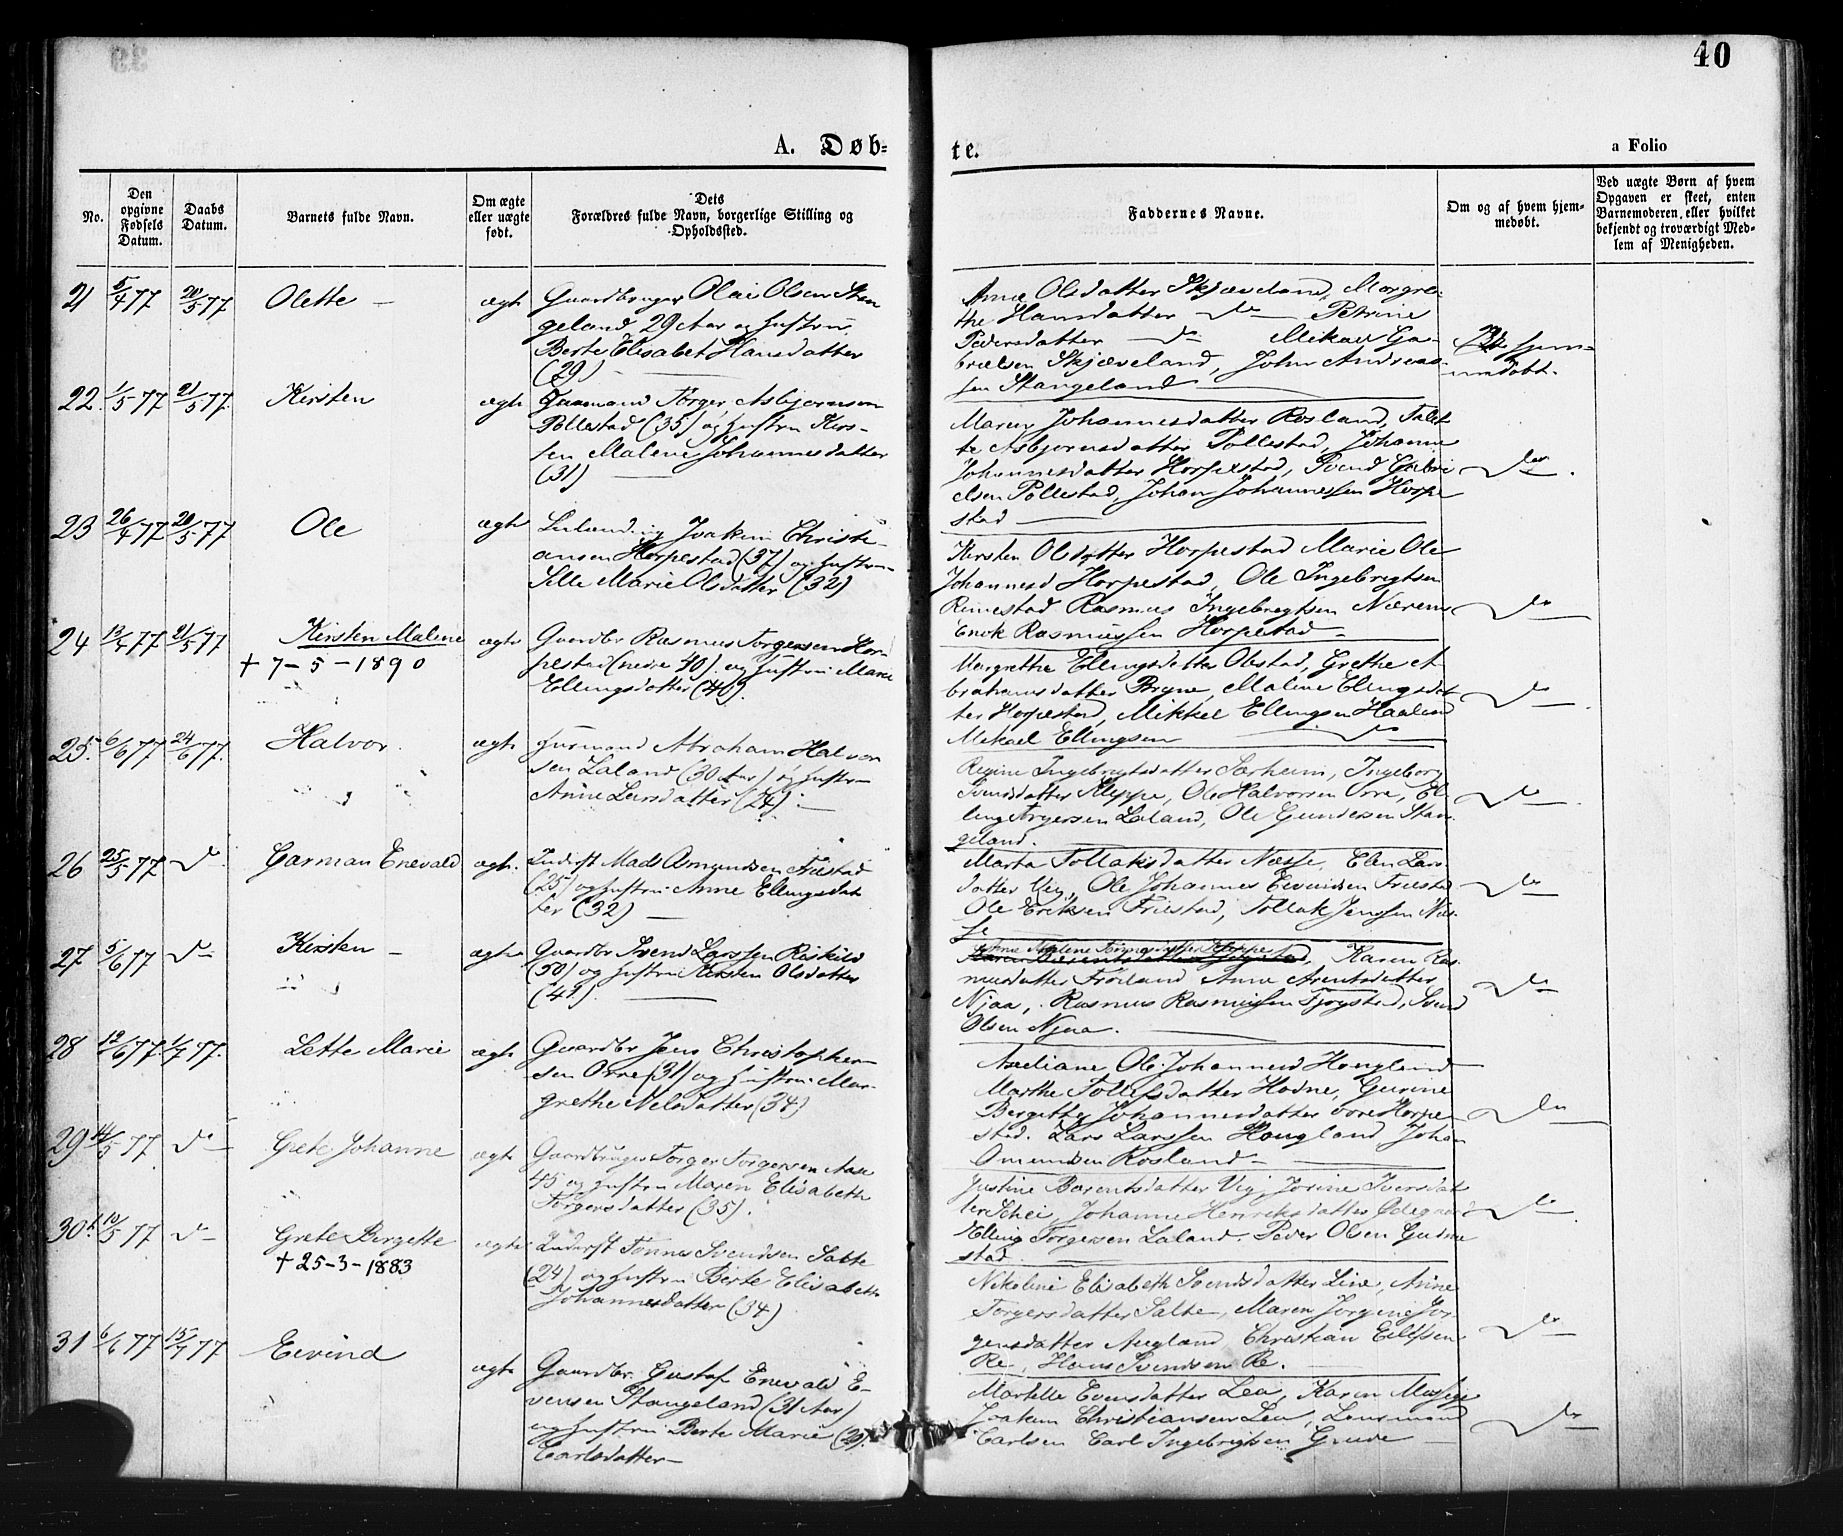 40
A. Døb-
te.
a Folio
No.
Den
opgivne
Fødsels
Datum.
Daabs
Datum.
Barnets fulde Navn.
Om ægte
eller uægte
født.
Dets
Forældres fulde Navn, borgerlige Stilling og
Opholdssted.
Faddernes Navne.
Om og af hvem hjem-
medøbt.
Ved uægte Børn af hvem
Opgaven er skeet, enten
Barnemoderen eller hvilket
bekjendt og troværdigt Med-
lem af Menigheden.
21 5/4 77 20/5 77 Olette – ægte Gaardbruger Olai Olsen Stan
geland, 29 Aar og Hustru
Berte Elisabet Hansdatter
(29)
Anne Olsdatter Skjæveland, Margre-
the Hansdatter do Petrine
Pedersdatter do Mikael Ga-
brielsen Skjæveland, John Andreas-
sen Stangeland
hjem-
medøbt.
22. 1/5 77 21/5 77. Kirsten ægte Gaamand Torger Asbjørnsen
Pollestad (35) og Hustru Kirs-
ten Malene Johannesdatter
(31)
Maren Johannesdatter Rosland, Talet-
te Asbjørnsdatter Pollestad, Johanne
Johannesdatter Horpestad, Svend Gabri
elsen Pollestad, Johan Johannessen Horpe
stad
do
23 26/4 77 20/5 77 Ole ægte Joakim Christi-
ansen Horpestad (37) og Hustru
Sille Marie Olsdatter (32)
Kirsten Olsdatter Horpestad Marie Ole
Johannesd Horpestad, Ole Ingebregtsen
Rimestad Rasmus Ingebregtsen Nærem
Enok Rasmussen Horpestad
do
24 13/4 77 21/5 77 Kirsten Malene ægte Gaardbr Rasmus Torgersen Hor-
† 7-5-1890
pestad (nedre 40) og Hustru Marie
Ellingsdatter (40).
Margrethe Ellingsdatter Obstad, Grethe A-
brahamsdatter Bryne, Malene Ellingsdat
ter Horpestad, Mikkel Ellingsen Haaland
Mikael Ellingsen do
do
25. 6/6 77 24/6 77. Halvor. ægte Husmand Abraham Halvor
sen Laland (30 Aar) og Hustru
Anne Larsdatter (24).
Regine Ingebregtsdatter Særheim, Ingeborg
Svendsdatter Kleppe, Ole Halvorsen Orre, El-
ling Torgersen Laland, Ole Gundersen Stan-
geland.
do
26 25/5 77 do Garman Enevald ægte. Inderst Mads Asmundsen Friestad
(25) og Hustru Anne Ellingsdat
ter (32)
Marta Tollaksdatter Næsse, Elen Lars
datter Vig, Ole Johannes Eivindsen Friestad
Ole Eriksen Friestad, Tollak Jenssen Næs-
se
do
27 5/6 77 do Kirsten – ægte Gaardbr Svend Larssen Riskild
(50) og Hustru Kirsten Olsdatter
(41).
Ane Malene Tønnesdatter Horpestad, Karen Ras-
musdatter Frøiland Anne Arentsdatter
Njaa, Rasmus Rasmussen Tjøgstad, Svend
Olsen Njaa.
do
28 12/6 77 1/7 77. Lette Marie ægte Gaardbr Jens Christopher-
sen Orre (31) og Hustru Mar-
grethe Nilsdatter (34)
Aseliane Ole Johannesd Hougland
Marthe Tollefsdatter Hodne, Gurine
Bergitte Johannesdatter øvre Horpe-
stad. Lars Larssen Hougland, Johan
Omundsen Rosland
do
29 14/5 77 do Grete Johanne ægte Gaardbruger Torger Torgersen Aase
45 og Hustru Maren Elisabeth
Torgersdatter (35).
Justine Bærentsdatter Vig, Jorine Iversdat
ter Schei, Johanne Henriksdatter Ødegaard
Elling Torgersen Laland. Peder Olsen Gudme
stad
do
30. 10/5 77 do Grete Bergette ægte Inderst Tønnes Svendsen Salte
† 25-3-1883
(24) og Hustru Berte Elisabeth
Johannesdatter (34)
Nikoline Elisabeth Svendsdatter Line, Anne
Torgersdatter Salte, Maren Jørgine Jør-
gensdatter Augland, Christian Eilefsen
Re, Hans Svendsen Re.
do
31 6/6 77 15/7 77 Eivind ægte Gaardbr. Gustaf Enevald E-
vensen Stangeland (31 Aar)
og Hustru Berte Marie (29).
Carlsdatter
Martelle Evensdatter Lea, Karen
Joakim Christiansen Lea, Lensmand
Carlsen Carl Ingebrigtsen Grude
do